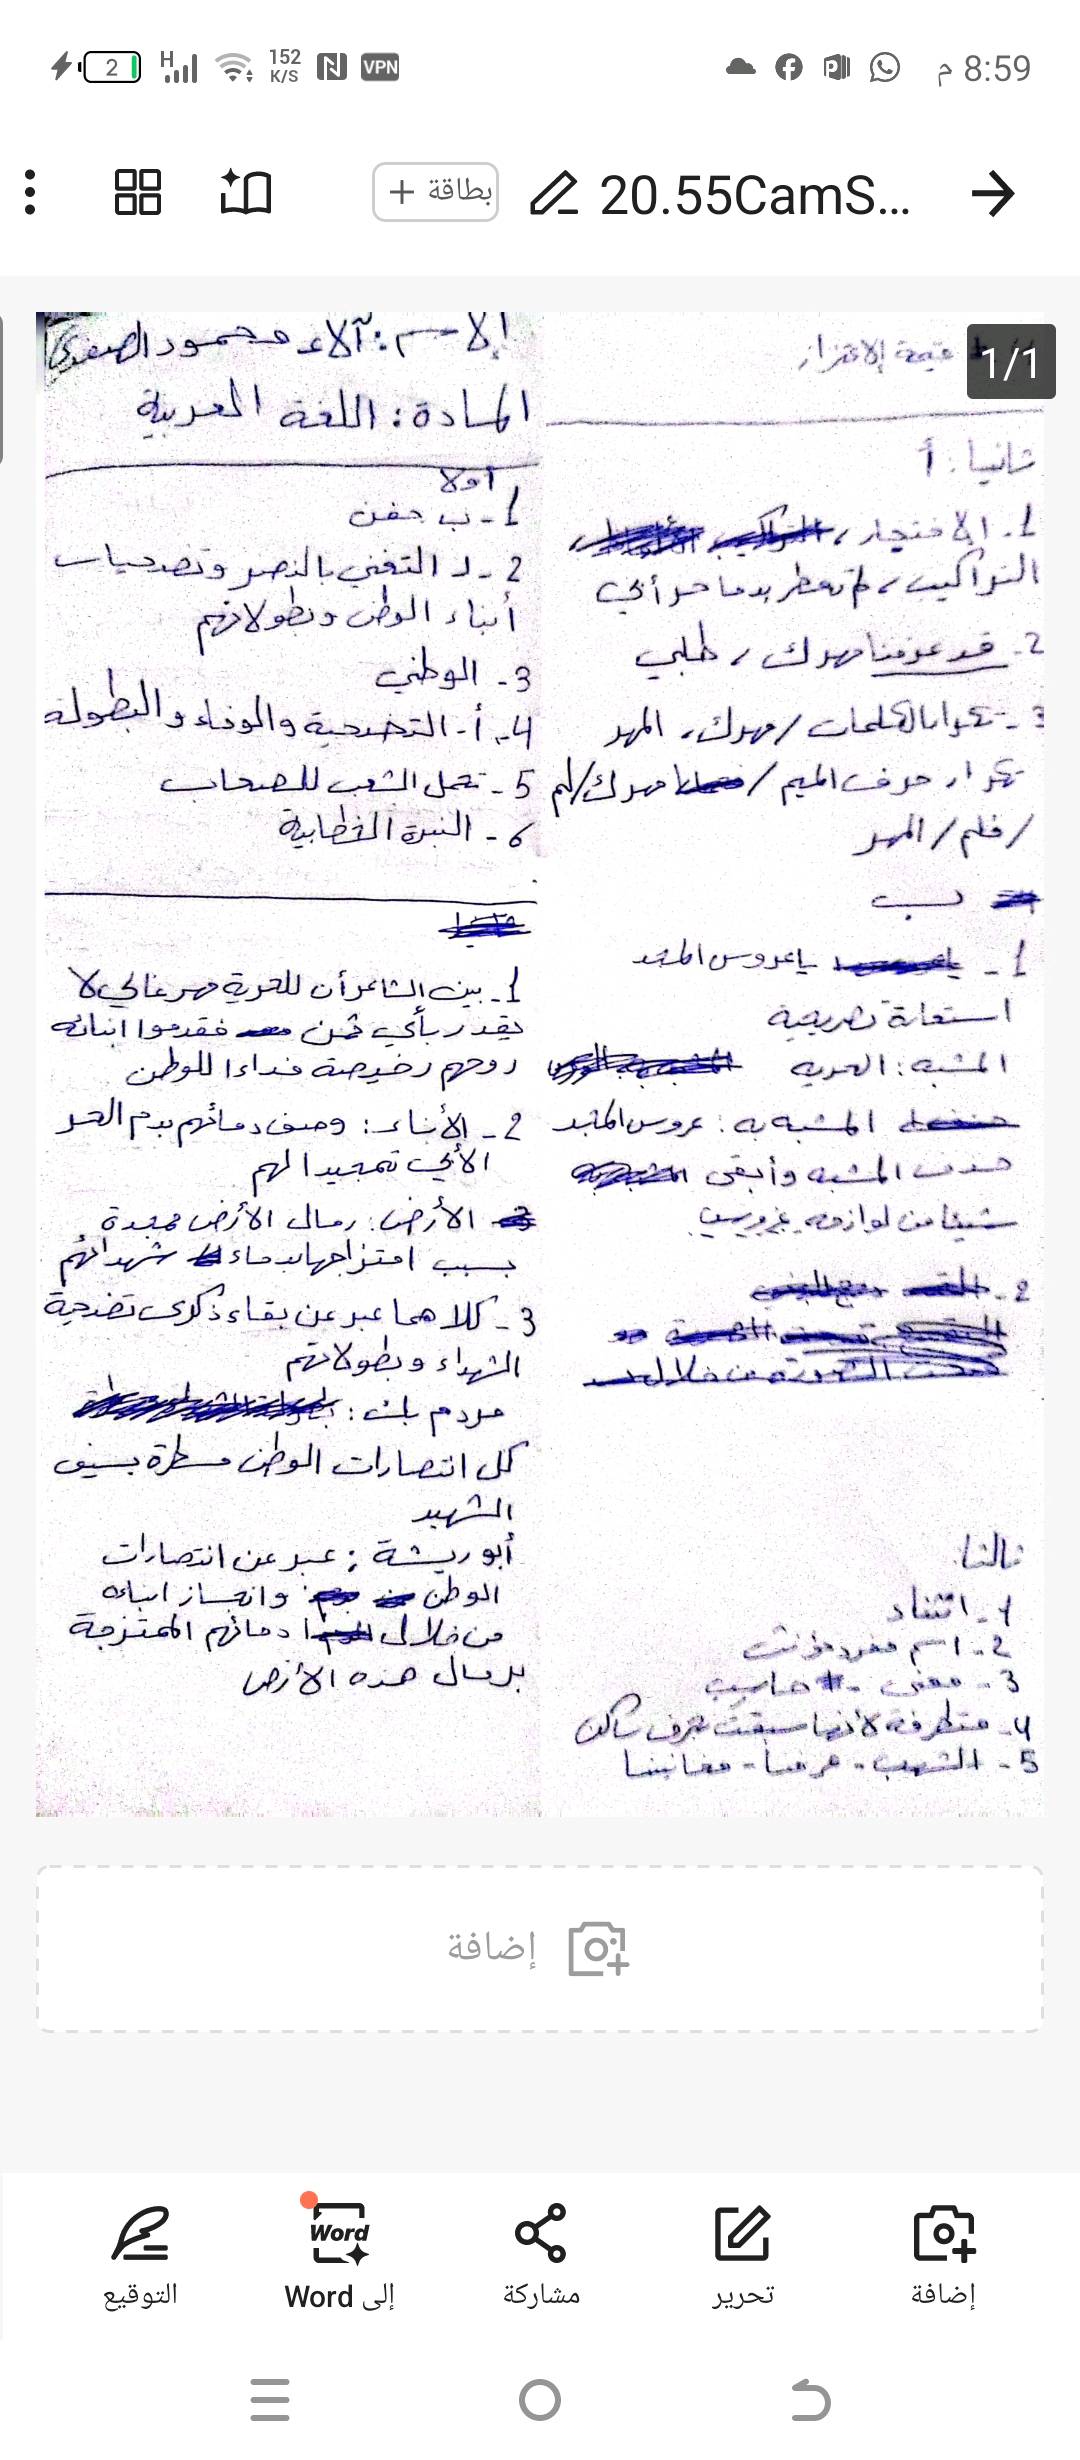 2
H
152
K/S
N
VPN
8:59 م
بطاقة +
20.55CamS...
1/1
الاسم: آلاء محمود
المادة: اللغة العربية
أولا
1- ب جفن
2- د التغني بالنصر وتضحيات
أبناء الوطن وبطولاتهم
3- الوطني
4- أ- التضحية والوفاء والبطولة
5- تحمل الشعب للصعاب
6- النبرة الخطابية
1- بين الشاعر أن للحرية مهر غالي لا
يقدر بأي ثمن فقدموا ابنائه
روحهم رخيصة فداءا للوطن
2- الأبناء: وصف دمائهم بدم الحر
الأبي تمجيدا لهم
الأرض: رمال الأرض ممجدة
بسبب امتزاجها بدماء شهدائهم
3- كلاهما عبر عن بقاء ذكرى تضحية
الشهداء وبطولاتهم
مردم بك:
كل انتصارات الوطن مسطرة بسيف
الشهيد
أبو ريشة: عبر عن انتصارات
الوطن وانجاز ابناءه
من خلال دمائهم الممتزجة
برمال هذه الأرض
قيمة الاعتزاز
ثانيا: أ
1. الافتخار،
التراكيب، لم تعطر بدما حر أبي
2- قد عرفنا مهرك، طلبي
3- تكرار الكلمات / مهرك، المهر
تكرار حرف الميم / مهرك / لم
/ فلم / المهر
ب
1- يا عروس المجد
استعارة تصريحية
المشبه: الحرية
المشبه به: عروس المجد
حذف المشبه وأبقى
شيئا من لوازمه
2-
ثالثا:
1- اتئاد
2- اسم مفرد مؤنث
3- معنى -
4- متطرفة لأنها سبقت بحرف ساكن
5- الشهب - مرضا - مغانينا
إضافة
التوقيع
Word
إلى Word
مشاركة
تحرير
إضافة